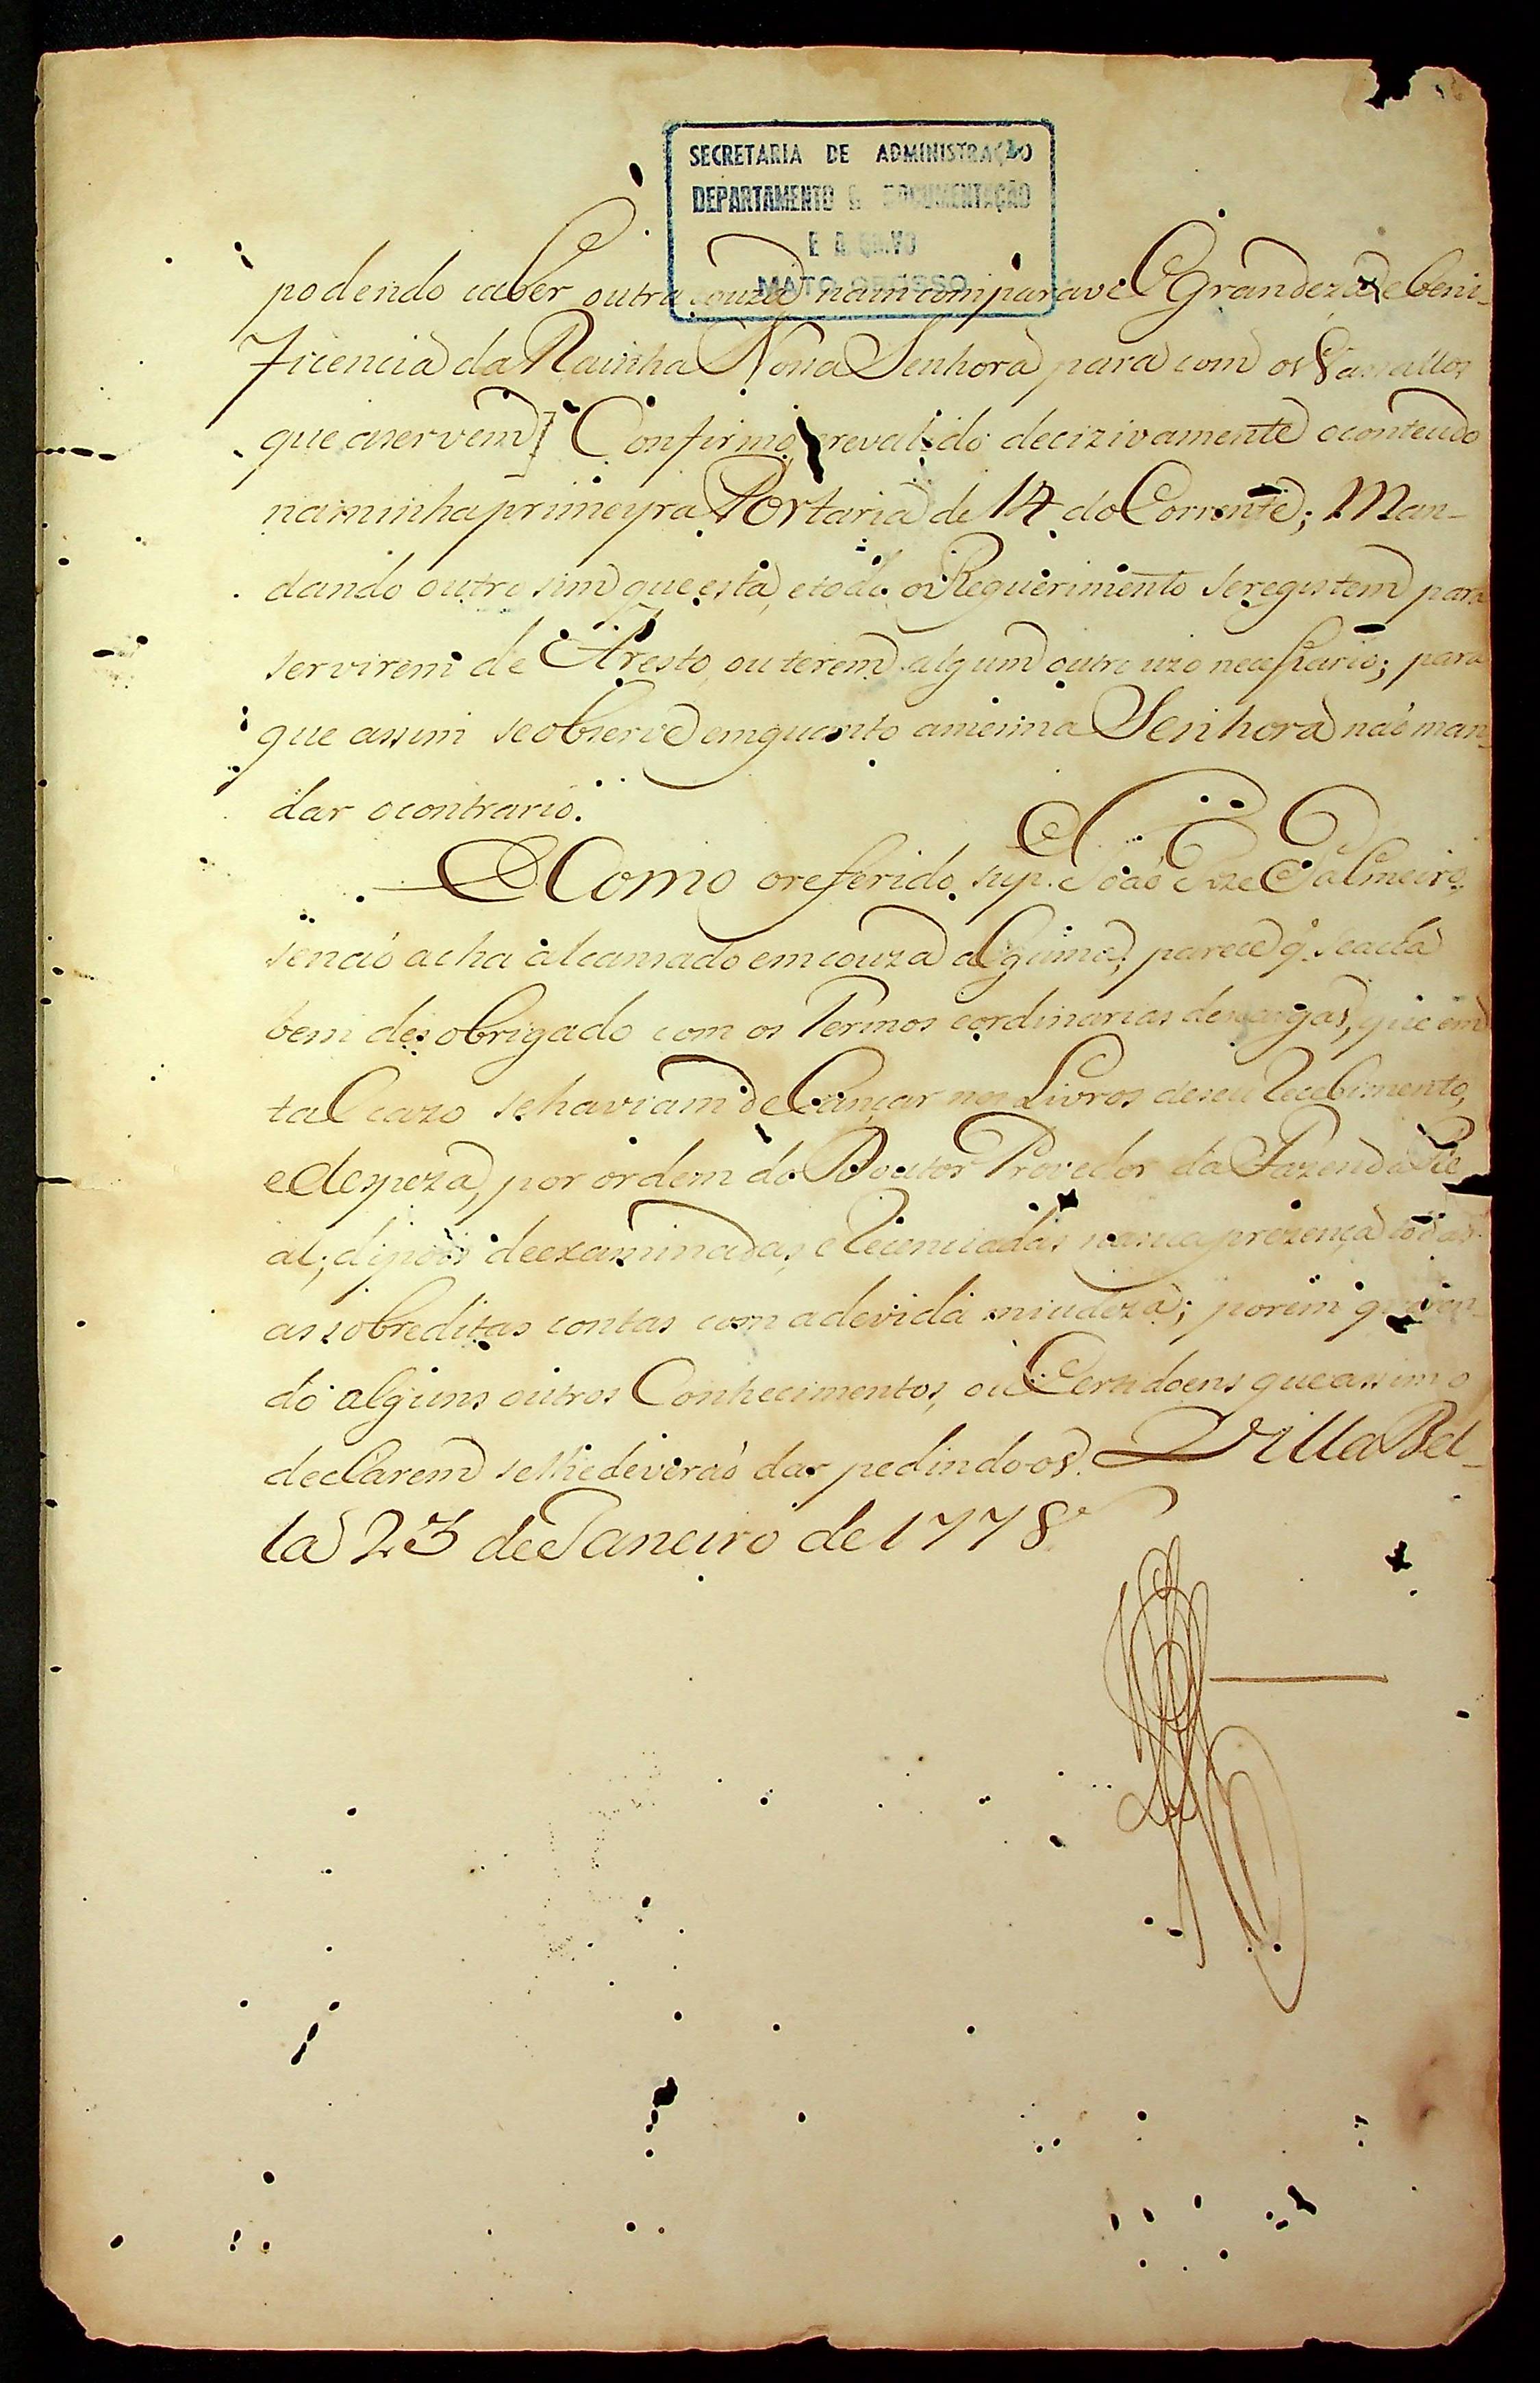 SECRETARIA DE ADMINISTRAÇÃO
DEPARTAMENTO DE DOCUMENTAÇÃO
E ARQUIVO
MATO GROSSO
podendo caber outra couza nam comparavel Grandeza, e beni-
ficencia da Rainha Nossa Senhora para com os Vassallos
que a servem] Confirmo, e revalido decizivamente o conteudo
na minha primeyra Portaria de 14 do Corrente; Man-
dando outro sim que esta, e todo os Requerimento se registem para
servirem de Aresto, ou terem algum outro uzo necessario; para
que assim se observe emquanto a mesma Senhora não man-
dar o contrario.
E Como o referido sup. João Joze Palmeiro,
se não acha alcansado em couza alguma; parece q. se acha
bem desobrigado com os Termos e ordinarias descargas, que em
tal cazo se haviam de Lançar nos Livros de seu Recebimento,
e despeza, por ordem do Doutor Provedor da Fazenda Re
al; dipois de examinadas, e licenciadas na sua prezença todas
as sobreditas contas com a devida miudeza; porem queren-
do alguns outros Conhecimentos, ou Certidoens que assim o
declarem se lhe deverão dar pedindo-os. Villa Bel-
la 23 de Janeiro de 1778